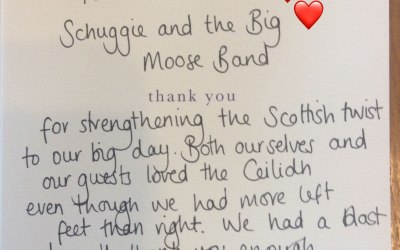 Schuggie and the Big
Moose Band
thank you
for strengthening the Scottish twist
to our big day. Both ourselves and
our guests loved the Ceilidh
even though we had more left
feet than right. We had a blast
enough